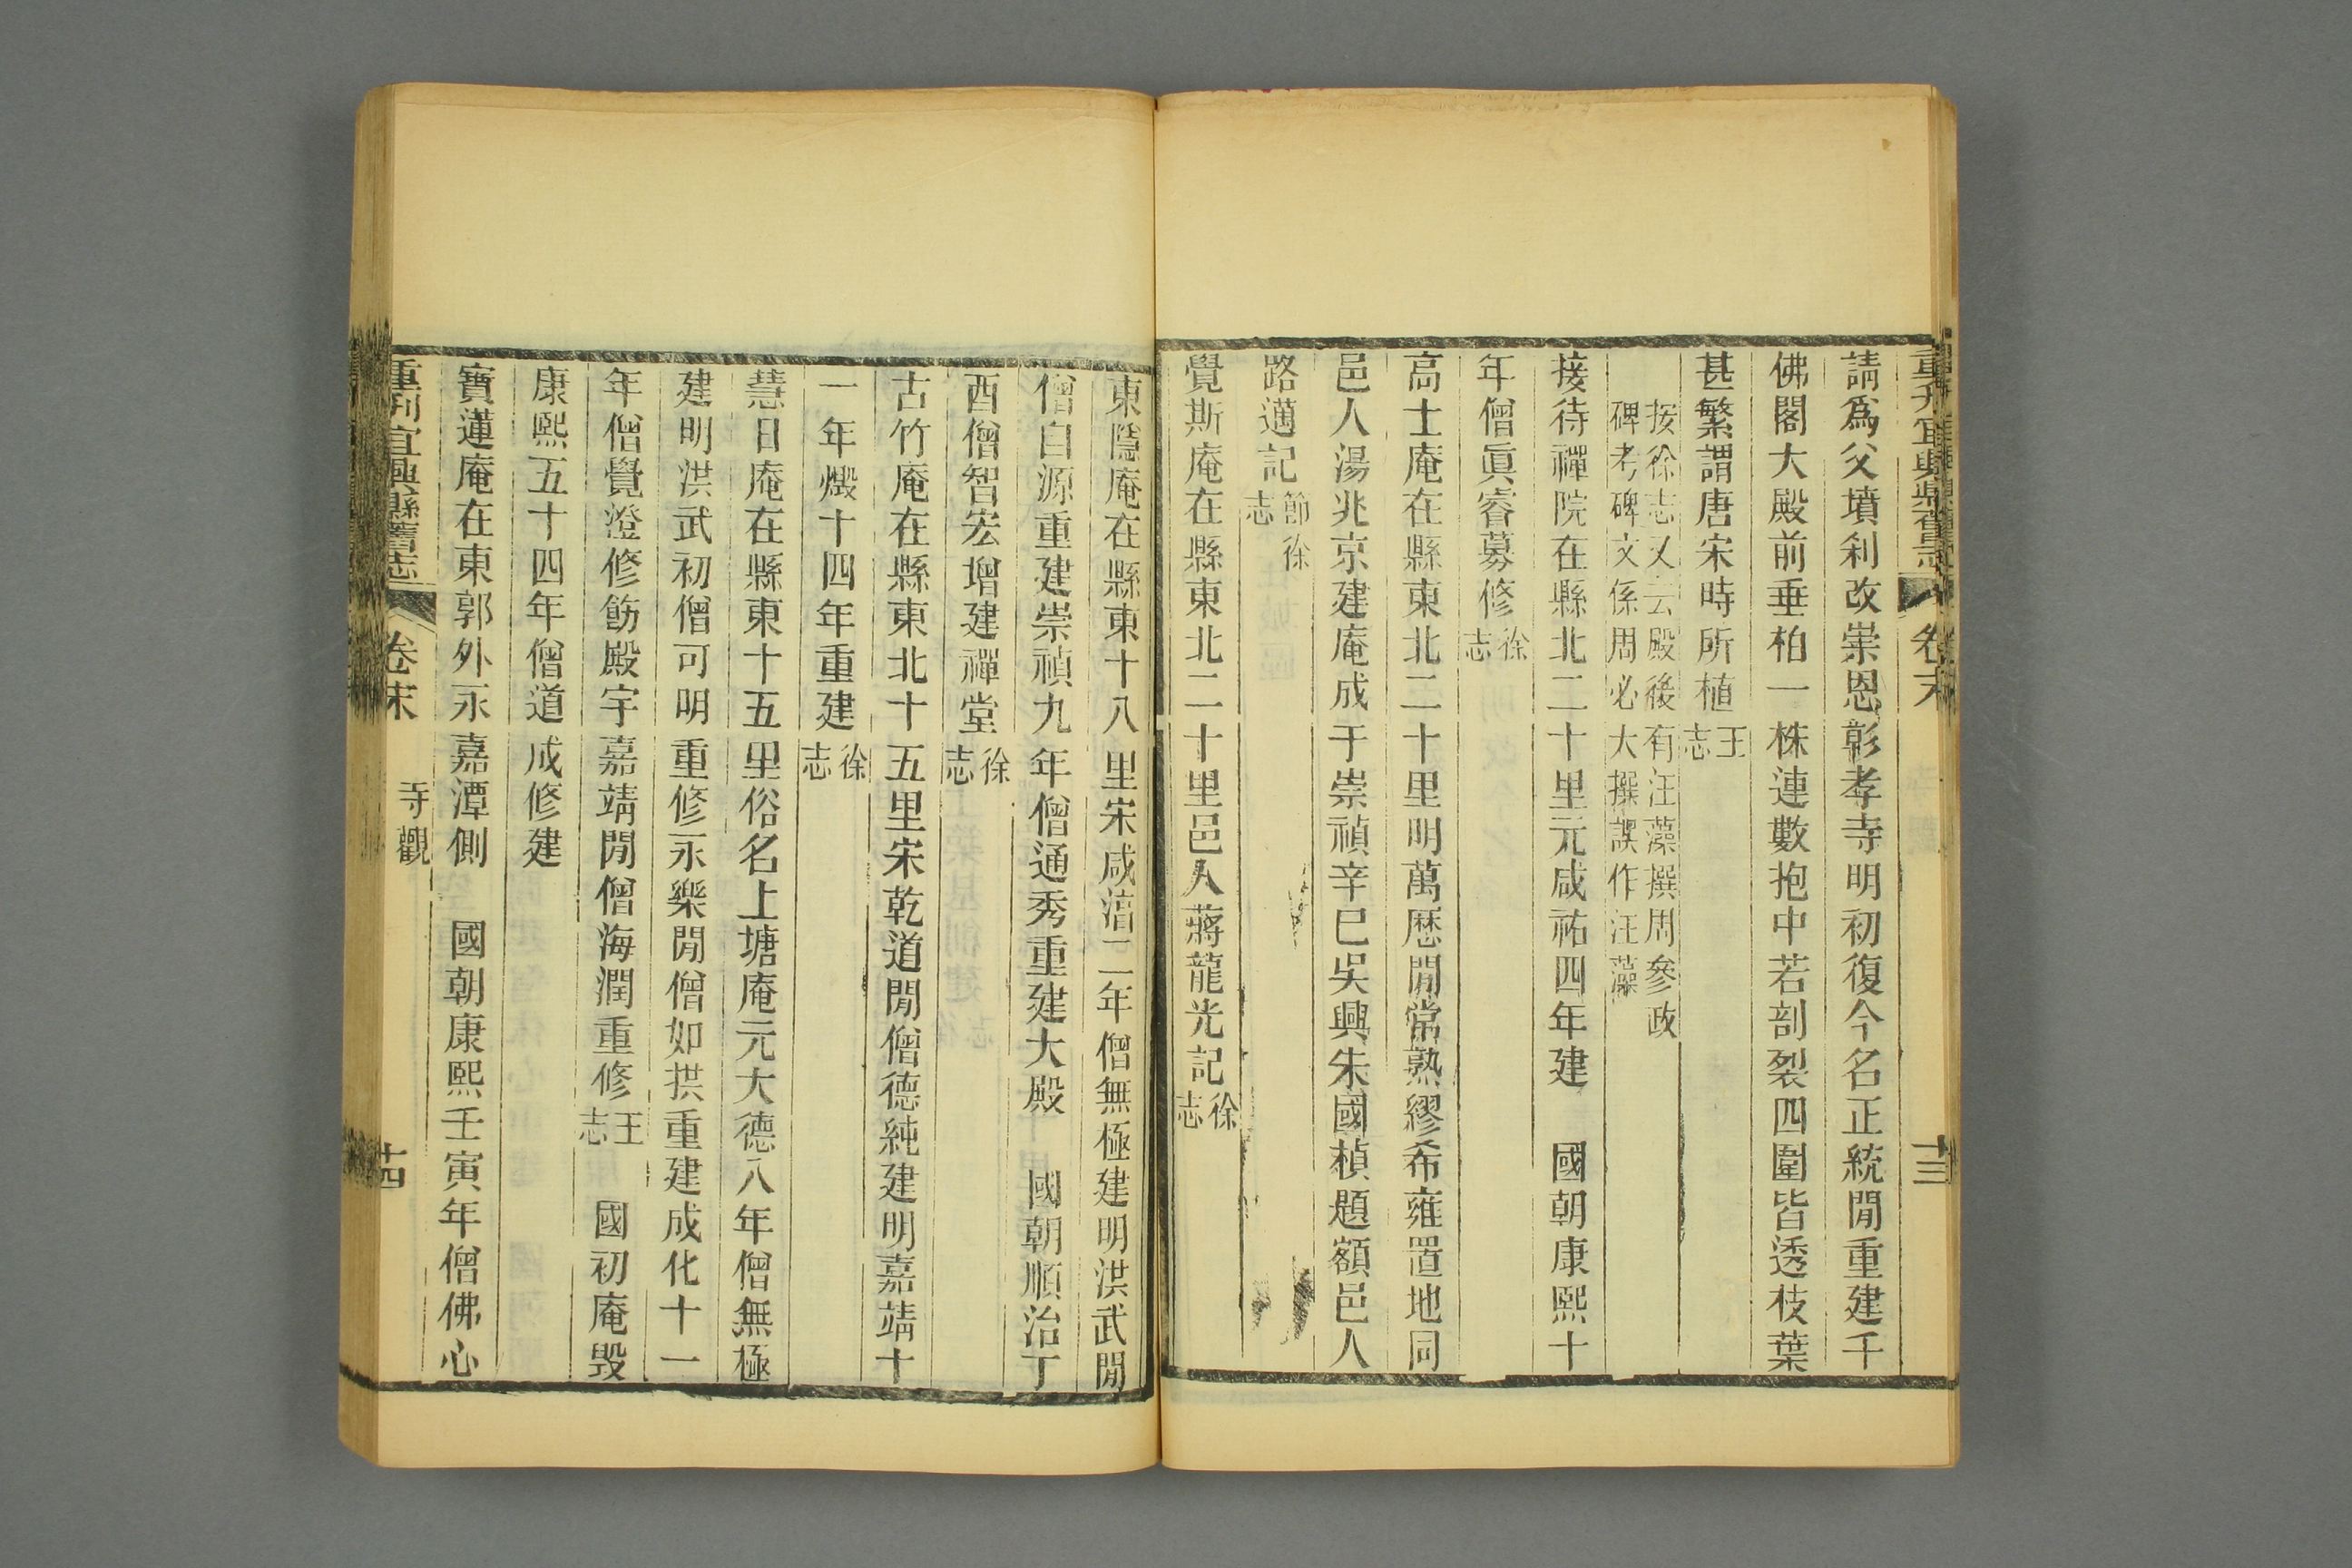 請爲父墳刹改崇恩彰孝寺明初復今名正統閒重建千
佛閣大殿前垂柏一株連數抱中若剖裂四圍皆透枝葉
甚繁謂唐宋時所植王志
按徐志又云殿後有汪藻撰周參政
碑考碑文係周必大撰誤作汪藻
接待禪院在縣北二十里元咸祐四年建　國朝康熙十
年僧眞睿募修徐志
高士庵在縣東北二十里明萬厯閒常熟繆希雍置地同
邑人湯兆京建庵成于崇禎辛巳吳興朱國楨題額邑人
路邁記節徐志
覺斯庵在縣東北二十里邑人蔣龍光記徐志
東隱庵在縣東十八里宋咸淳二年僧無極建明洪武閒
僧自源重建崇禎九年僧通秀重建大殿　國朝順治丁
酉僧智宏增建禪堂徐志
古竹庵在縣東北十五里宋乾道閒僧德純建明嘉靖十
一年燬十四年重建徐志
慧日庵在縣東十五里俗名上塘庵元大德八年僧無極
建明洪武初僧可明重修永樂閒僧如拱重建成化十一
年僧覺澄修飭殿宇嘉靖閒僧海潤重修王志　國初庵毀
康熙五十四年僧道成修建
寶蓮庵在東郭外永嘉潭側　國朝康熙壬寅年僧佛心
重刊宜興縣舊志　卷末　寺觀　十四